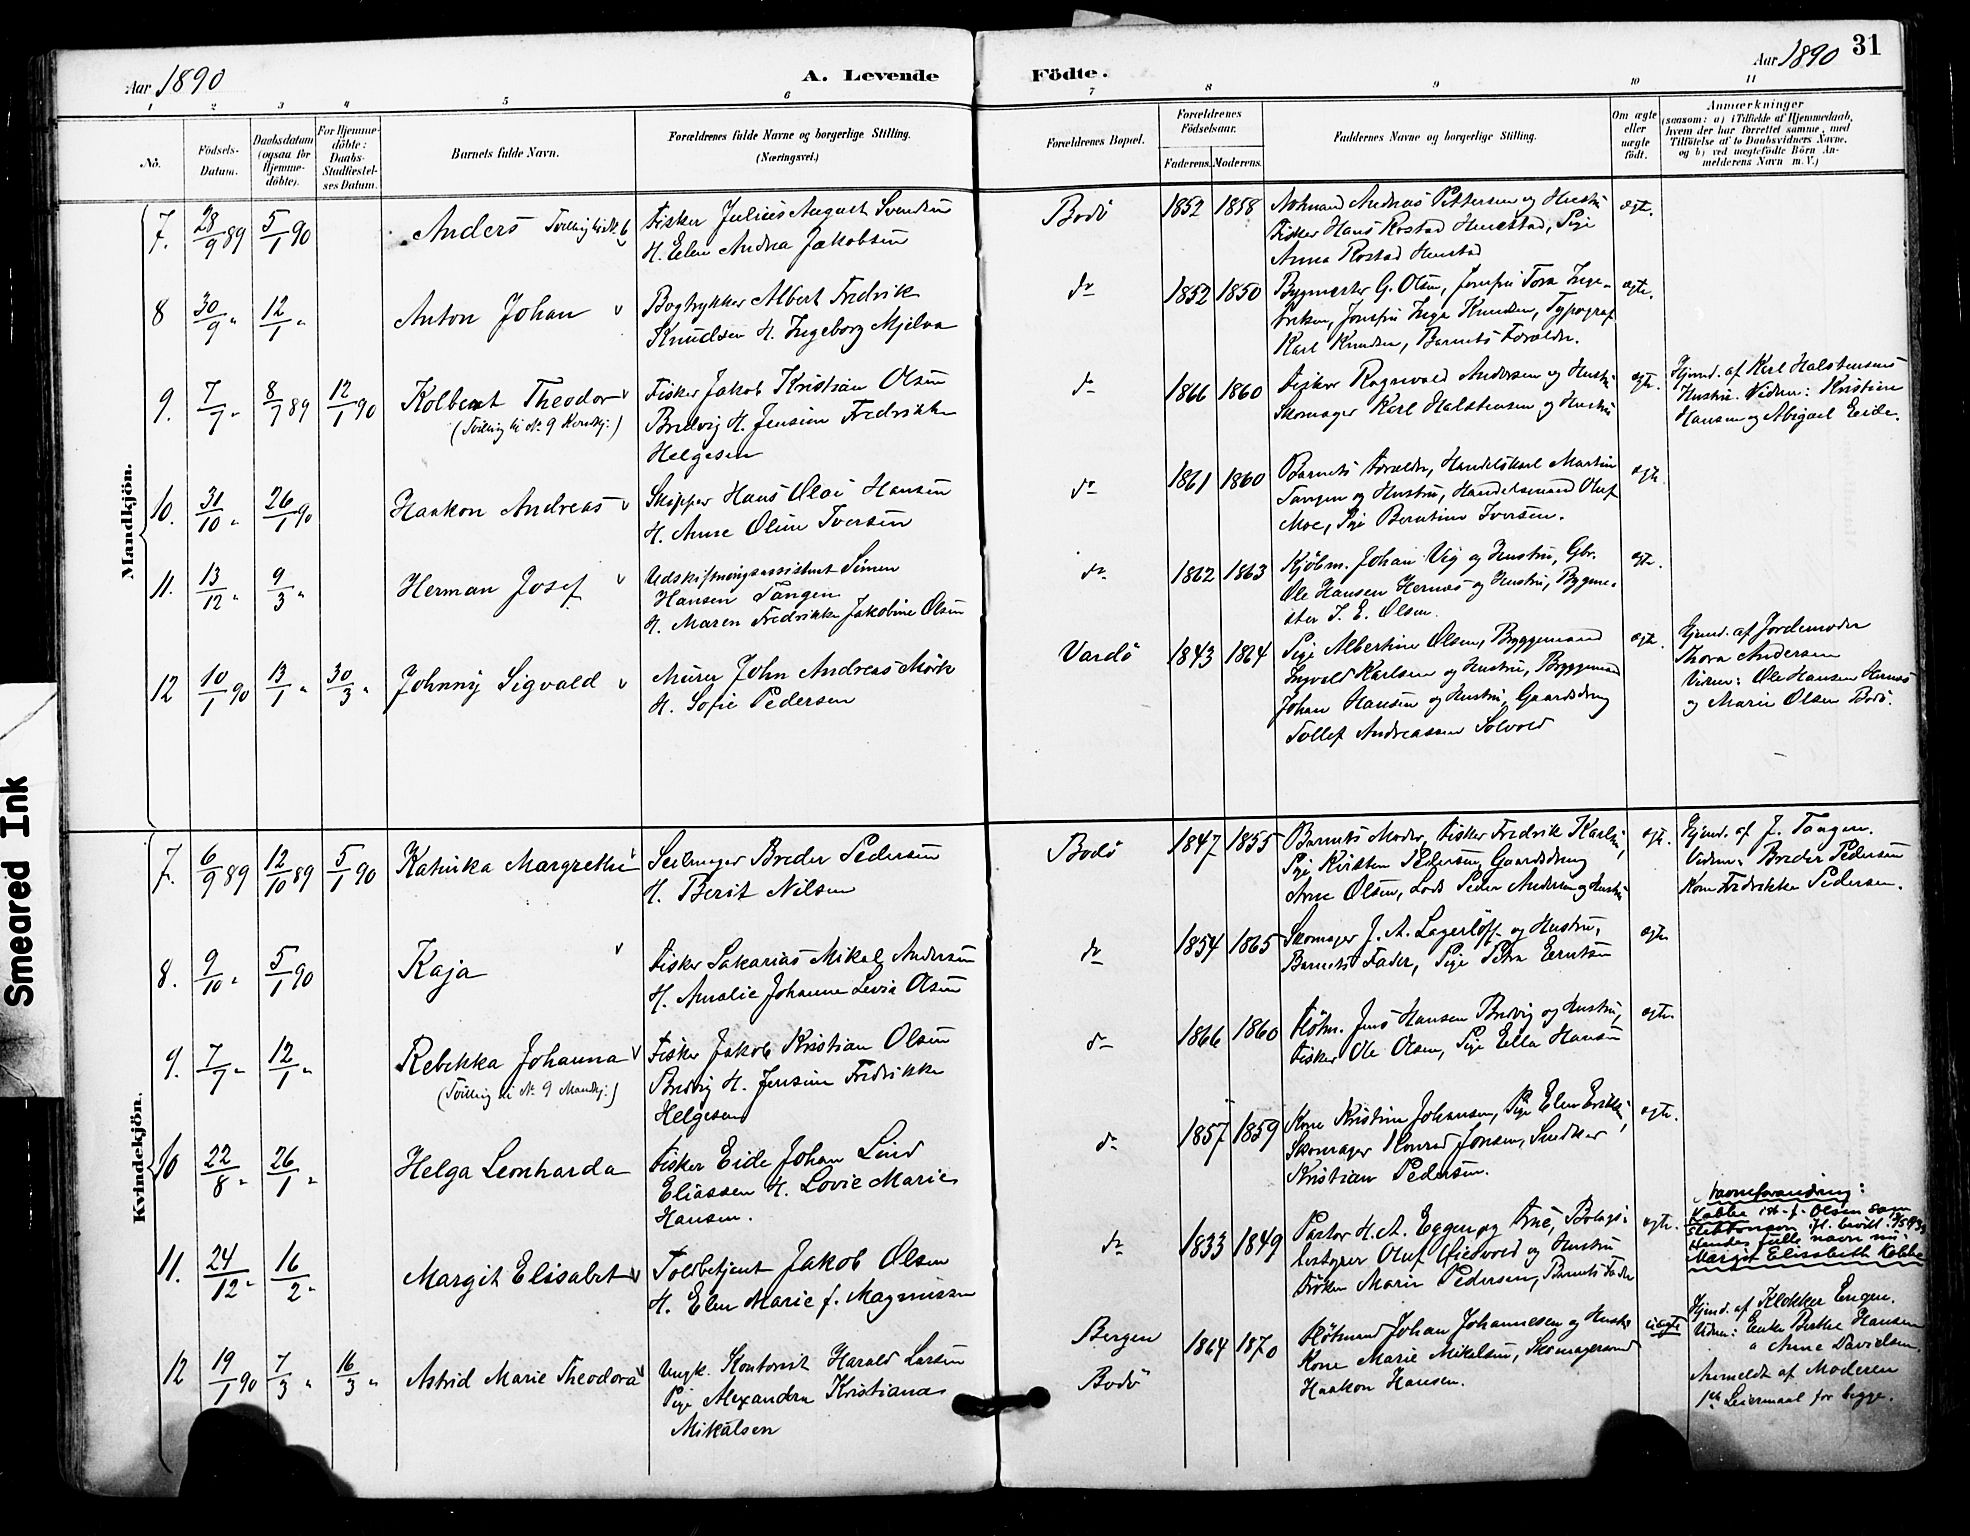 Smeared Ink
Aar 1890
A. Levende
Födte.
Aar 1890
31
1 2 3 4 5 6 7 8 9 10 11
No.
Födsels-Datum.
Daabsdatum (ogsaa for Hjemme-döbte).
For Hjemme-döbte: Daabs-Stadfæstel-ses Datum.
Barnets fulde Navn.
Forældrenes fulde Navne og borgerlige Stilling.
(Næringsvei.)
Forældrenes Bopæl.
Forældrenes Födselsaar.
Faderens. Moderens.
Faddernes Navne og borgerlige Stilling.
Om ægte eller uægte födt.
Anmærkninger
(saasom: a) i Tilfælde af Hjemmedaab,
hvem der har forrettet samme, med
Tilföielse af to Daabsvidners Navne,
og b) ved uægtefödte Börn An-
melderens Navn m. V.)
Mandkjön.
7. 28/9 89 5/1 90 Anders Tvilling til No 6
Fisker Julius August Svendsen
H. Elen Andrea Jakobsen
Bodö 1852 1858
Andreas Pettersen og Hustru
Fisker Hans Rostad Hunstad, Pige
Anna Rostad Hunstad
ægte.
8 30/9 " 12/1 " Anton Johan
Bogtrykker Albert Fredrik
Knudsen H. Ingeborg Mjelva
do 1852 1850
Bygmester G. Olsen, Jomfru Tora Inge-
briksen, Jomfru Inga Knudsen, Typograf
Karl Knudsen, Barnets Forældre.
ægte.
9. 7/7 " 8/7 89 12/1 90 Kolbent Theodor
(Tvilling til No 9 Kvindkj:)
Fisker Jakob Kristian Olsen
Bredvig H. Jensine Fredrikke
Helgesen
do 1866 1860
Fisker Ragnvald Andersen og Hustru
Skomager Karl Halstensen og Hustru
ægte.
Hjemd. af Karl Halstensens
Hustru. Vidner: Kristine
Hansen og Abigael Eide.
10. 31/10 " 26/1 90 Haakon Andreas
Skipper Hans Olai Hansen
H. Anne Oline Iversen
do 1861 1860
Barnets Forældre, Handelskarl Martin
Tangen og Hustru, Handelsmand Oluf
Moe, Pige Berntine Iversen.
ægte.
11. 13/12 " 9/3 " Herman Josef
Udskiftningsassistent Simen
Hansen Tangen
H. Maren Fredrikke Jakobine Olsen
do 1862 1863
Kjöbm. Johan Vig og Hustru, Gbr.
Ole Hansen Hernes og Hustru, Bygme-
ster I. E. Olsen.
ægte.
12 10/1 90 13/1 " 30/3 " Johnny Sigvald
Murer John Andreas Mörk
H. Sofie Pedersen
Vardö 1843 1864
Pige Albertine Olsen, Byggemand
Ingvald Karlsen og Hustru, Byggemand
Johan Hansen og Hustru, Gaardsdreng
Tollef Andreassen Solvold
ægte.
Hjemd. af Jordemoder
Thora Andersen
Vidner: Ole Hansen Hernes
og Marie Olsen Bodö.
Kvindekjön.
7. 6/9 89 12/10 89 5/1 90 Katinka Margrethe
Seilmager Breder Pedersen
H. Berit Nilsen
Bodö 1847 1855
Barnets Moder, Fisker Fredrik Karlsen,
Pige Kirsten Pedersen, Gaardsdreng
Arne Olsen, Lods Peder Andersen og Hustru
ægte.
Hjemd. af J. Tangen.
Vidner: Breder Pedersen
Kone Fredrikke Pedersen.
8. 9/10 " 5/1 90 Kaja
Fisker Sakarias Mikal Andersen
H. Amalie Johanne Lovis Olsen
do 1854 1865
Skomager J. A. Lagerlöff og Hustru,
Barnets Fader, Pige Petra Erntsen
ægte.
9. 7/7 " 12/1 " Rebekka Johanna
(Tvilling til No 9 Mandkj:)
Fisker Jakob Kristian Olsen
Bredvig H. Jensine Fredrikke
Helgesen
do 1866 1860
Jens Hansen Bredvig og Hustru,
Fisker Ole Olsen, Pige Ella Hansen
ægte.
10 22/8 " 26/1 " Helga Leonharda
Fisker Eide Johan Lind
Eliassen H. Lovie Marie
Hansen.
do 1857 1859
Kone Kristine Johansen, Pige Elen Eriksen,
Skomager Konrad Jensen, Snedker
Kristian Pedersen.
ægte.
11. 24/12 " 16/2 " Margit Elisabet
Toldbetjent Jakob Olsen
H. Elen Marie f. Magnussen
do 1833 1849
Pastor H. A. Eggen og Frue, Bolags-
bestyrer Oluf Hiedvold og Hustru
Fröken Marie Pedersen, Barnets Fader
ægte.
Navneforandring:
Kobbe ist. f. Olsen som
Hendes fulle navn nu:
Margit Elissbeth Kobbe
12 19/1 90 7/3 " 16/3 " Astrid Marie Theodora
Ungk. Kontorist Harald Larsen
Pige Alexandra Kristiana
Mikalsen
Bergen
Bodö
1864 1870
Johan Johannesen og Hustru
Kone Marie Mikalsen, Skomagersvend
Haakon Hansen.
uægte
Hjemd. af Klokker Engen.
Vidner: Enke Berthe Hansen
o Anne Davidsen
Anmeldt af Moderen
1ste Leiermaal for begge.